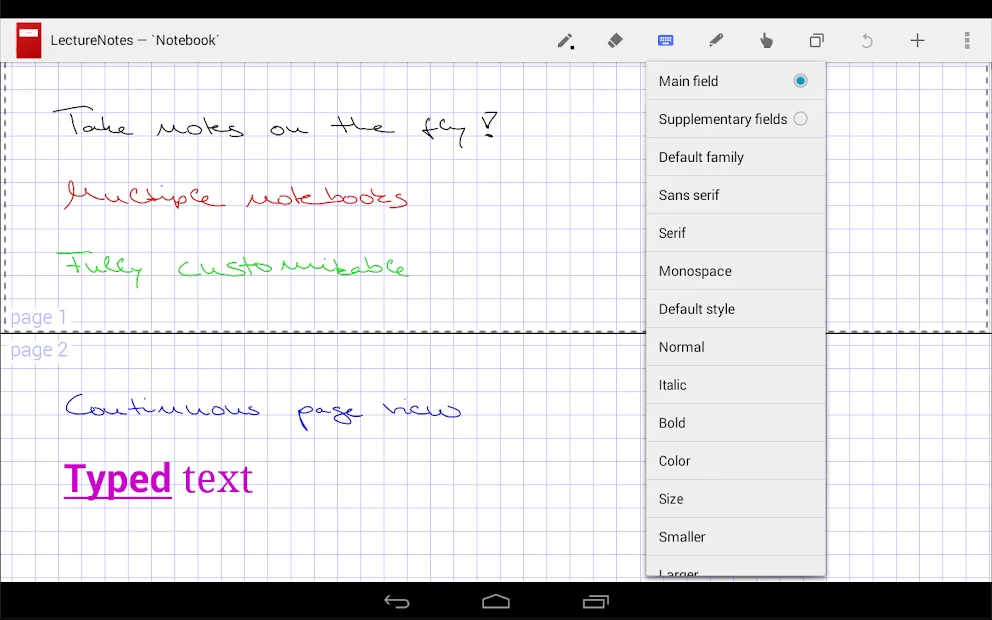 LectureNotes — `Notebook´
Take notes on the fly!
Multiple notebooks
Fully customizable
page 1
page 2
Continuous page view
Typed text
Main field
Supplementary fields
Default family
Sans serif
Serif
Monospace
Default style
Normal
Italic
Bold
Color
Size
Smaller
Larger